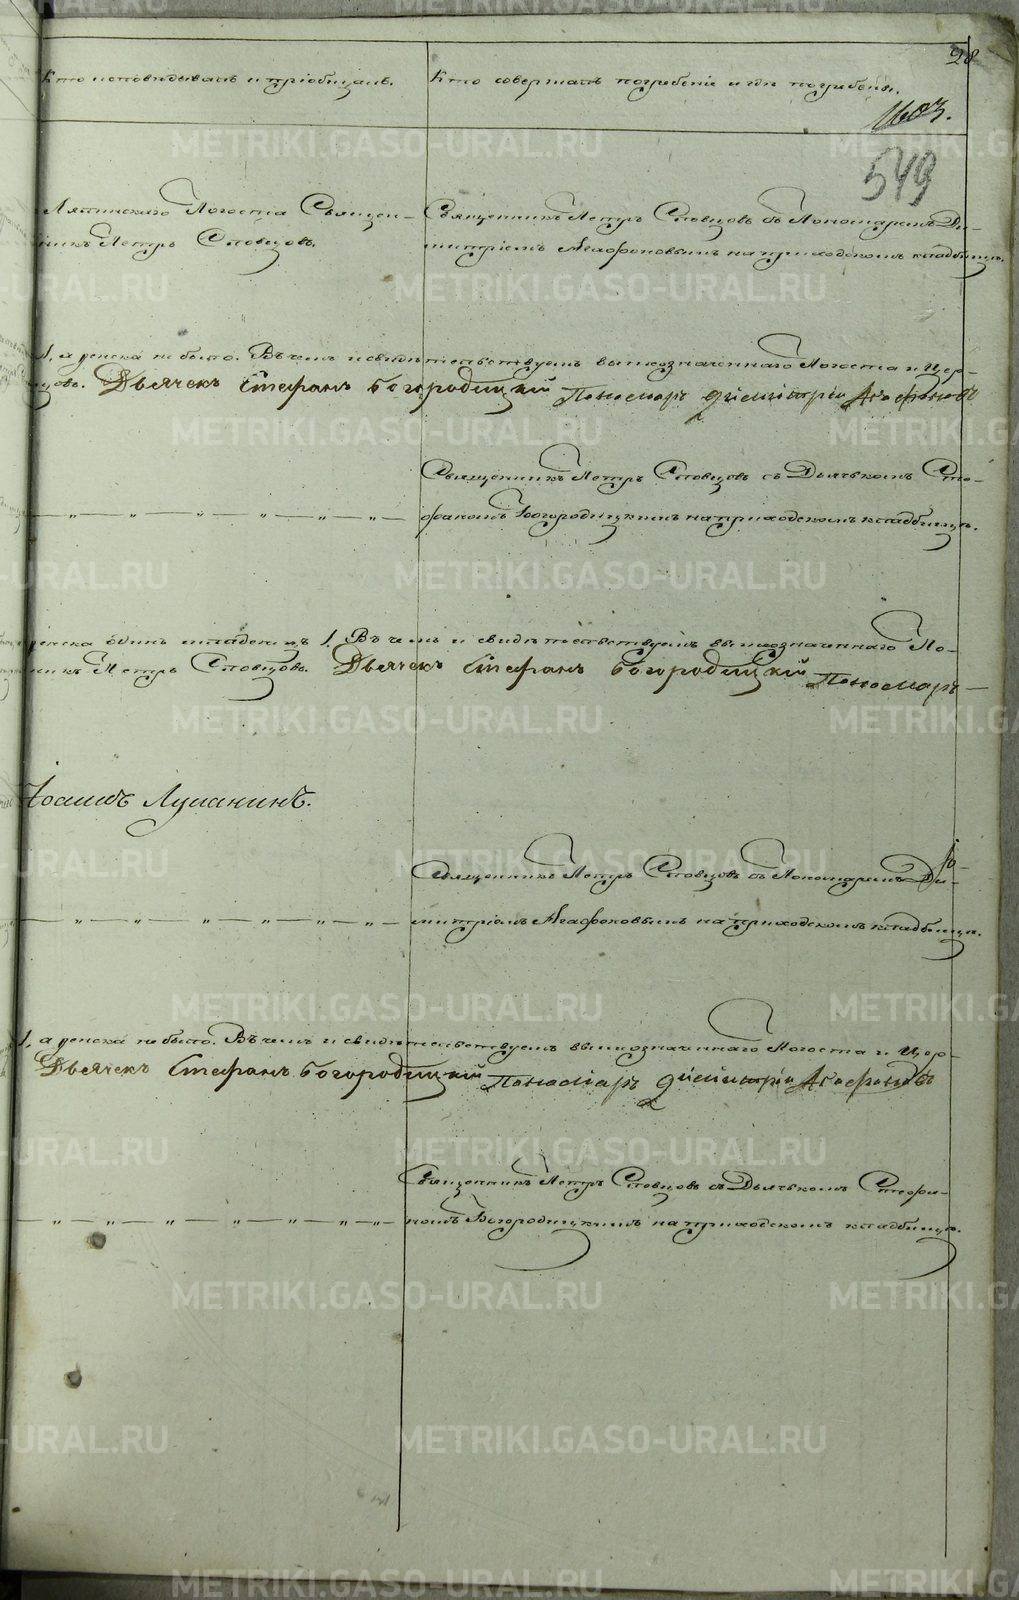 28
Кто исповѣдывалъ и пріобщалъ. Кто совершалъ погребеніе и гдѣ погребены.
1603.
549
Погоста Священ- Священникъ Петръ Словцовъ съ Пономаремъ Ди-
никъ Петръ Словцовъ. митріемъ Агафоновымъ на приходскомъ кладбищѣ.
1, а женска не было. Въ чемъ и свидѣтельствуемъ вышеозначеннаго Погоста и Цер-
Дьячекъ Стефанъ Богородицкій Пономарь Димитрій Агафоновъ
Священникъ Петръ Словцовъ съ Дьячькомъ Сте-
фаномъ Богородицкимъ на приходскомъ кладбищѣ.
женска одинъ младенецъ 1. Въ чемъ и свидѣтельствуемъ вышеозначеннаго По-
никъ Петръ Словцовъ. Дьячекъ Стефанъ Богородицкій Пономарь
Іоаннъ
Священникъ Петръ Словцовъ съ Пономаремъ Ди-
митріемъ Агафоновымъ на приходскомъ кладбищѣ.
1, а женска не было. Въ чемъ и свидѣтельствуемъ вышеозначеннаго Погоста и Цер-
Дьячекъ Стефанъ Богородицкій Пономарь Димитрій Агафоновъ
Священникъ Петръ Словцовъ съ Дьячькомъ Стефа-
номъ Богородицкимъ на приходскомъ кладбищѣ.
METRIKI.GASO-URAL.RU